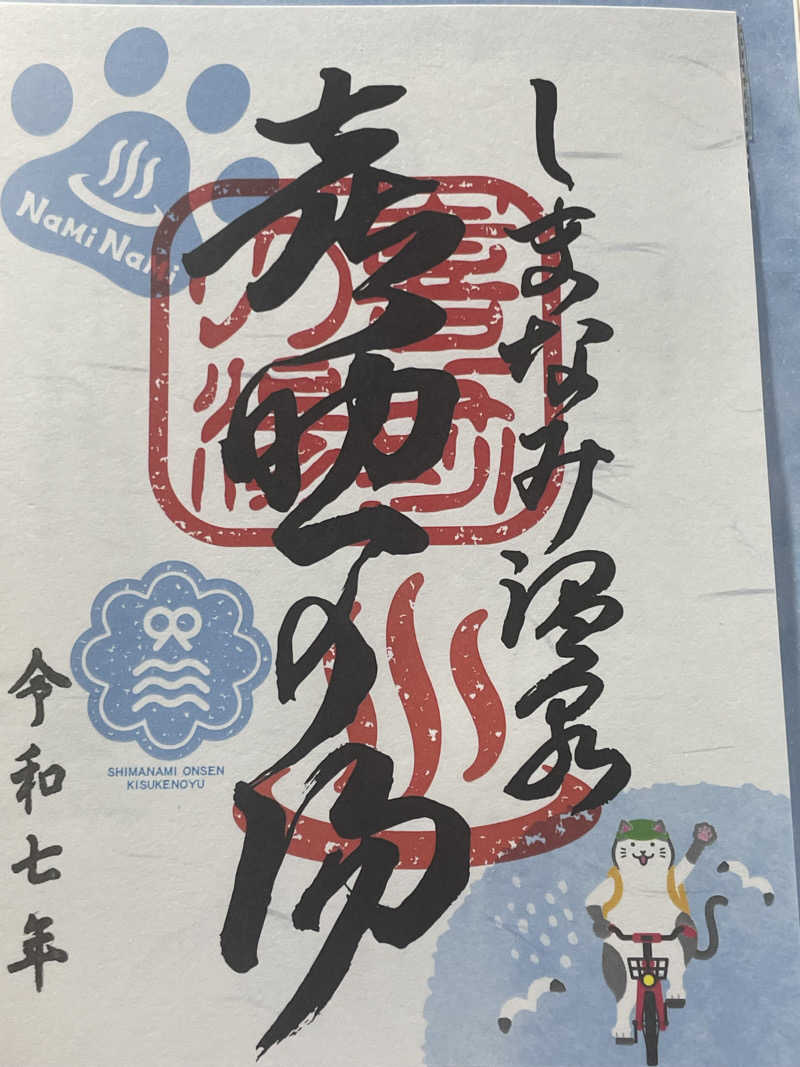 しまなみ温泉
喜助の湯
令和七年
NaMi NaMi
SHIMANAMI ONSEN
KISUKENOYU